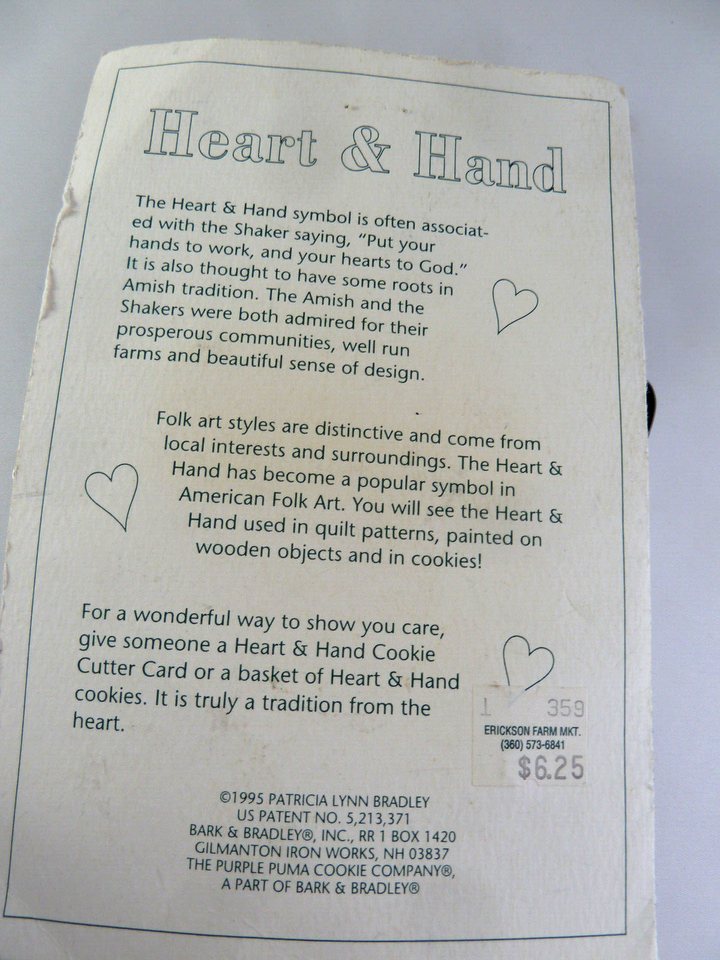 Heart & Hand
The Heart & Hand symbol is often associat-
ed with the Shaker saying, “Put your
hands to work, and your hearts to God.”
It is also thought to have some roots in
Amish tradition. The Amish and the
Shakers were both admired for their
prosperous communities, well run
farms and beautiful sense of design.
Folk art styles are distinctive and come from
local interests and surroundings. The Heart &
Hand has become a popular symbol in
American Folk Art. You will see the Heart &
Hand used in quilt patterns, painted on
wooden objects and in cookies!
For a wonderful way to show you care,
give someone a Heart & Hand Cookie
Cutter Card or a basket of Heart & Hand
cookies. It is truly a tradition from the
heart.
1 359
ERICKSON FARM MKT.
(360) 573-6841
$6.25
©1995 PATRICIA LYNN BRADLEY
US PATENT NO. 5,213,371
BARK & BRADLEY®, INC., RR 1 BOX 1420
GILMANTON IRON WORKS, NH 03837
THE PURPLE PUMA COOKIE COMPANY®,
A PART OF BARK & BRADLEY®